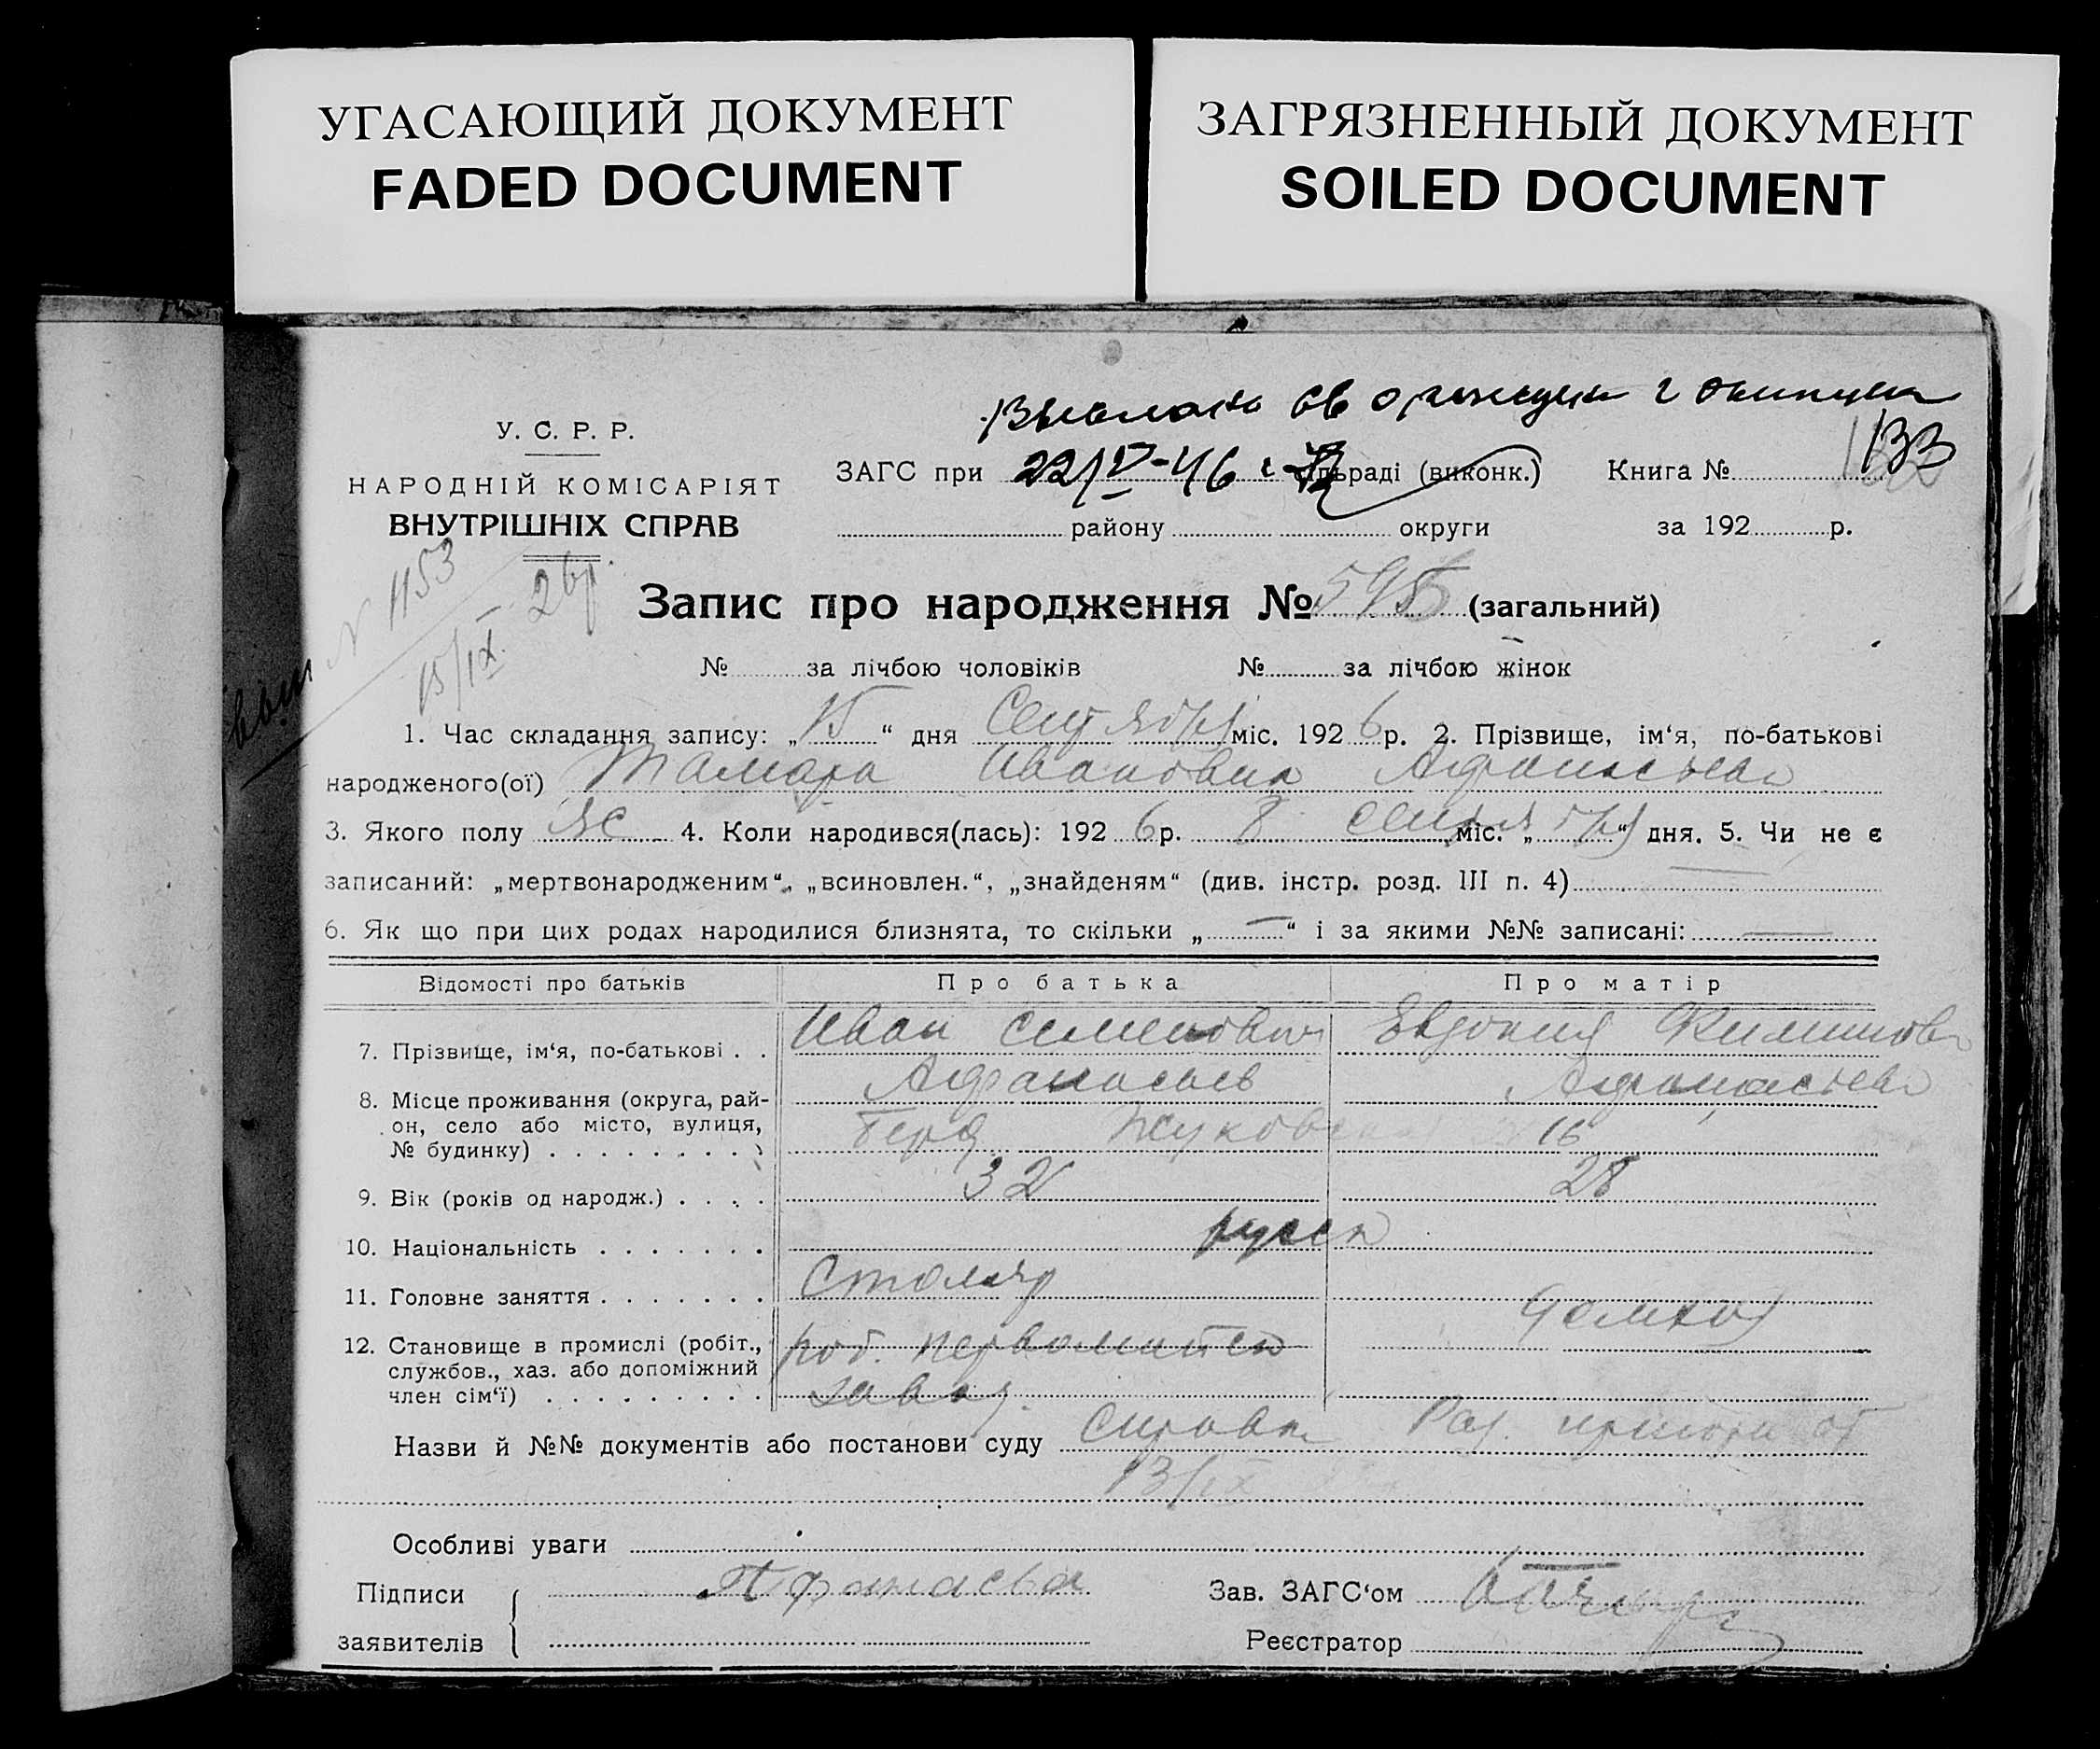 УГАСАЮЩИЙ ДОКУМЕНТ
FADED DOCUMENT
ЗАГРЯЗНЕННЫЙ ДОКУМЕНТ
SOILED DOCUMENT
У. С. Р. Р.
НАРОДНІЙ КОМІСАРІЯТ
ВНУТРІШНІХ СПРАВ
ЗАГС при 22/V-46 г сільраді (виконк.) Книга № 133
району округи за 192 р.
N 1153
15/IX 26р.
Запис про народження № (загальний)
№ за лічбою чоловіків № за лічбою жінок
1. Час складання запису: „15“ дня Сентября міс. 1926р. 2. Прізвище, ім‘я, по-батькові
народженого(ої) Тамара Ивановна Афанасьева
3. Якого полу ж 4. Коли народився(лась): 1926р. 8 сентября міс. „ “ дня. 5. Чи не є
записаний: „мертвонародженим“, „всиновлен.“, „знайденям“ (див. інстр. розд. III п. 4)
6. Як що при цих родах народилися близнята, то скільки „—“ і за якими №№ записані: —
Відомості про батьків Про батька Про матір
7. Прізвище, ім‘я, по-батькові . . Иван Семенович Евдокия
Афанасьев Афанасьева
8. Місце проживання (округа, рай-
он, село або місто, вулиця,
№ будинку) . . . . . . . . . Берд 16
9. Вік (років од народж.) . . . . 32 28
10. Національність . . . . . . . русск
11. Головне заняття . . . . . . . Столяр домхоз
12. Становище в промислі (робіт.,
службов., хаз. або допоміжний
член сім‘ї) . . . . . . . . . роб. Первомайск
завод.
Назви й №№ документів або постанови суду Справка от
13/IX
Особливі уваги
Підписи
заявителів
Афанасьев
Зав. ЗАГС‘ом
Реєстратор